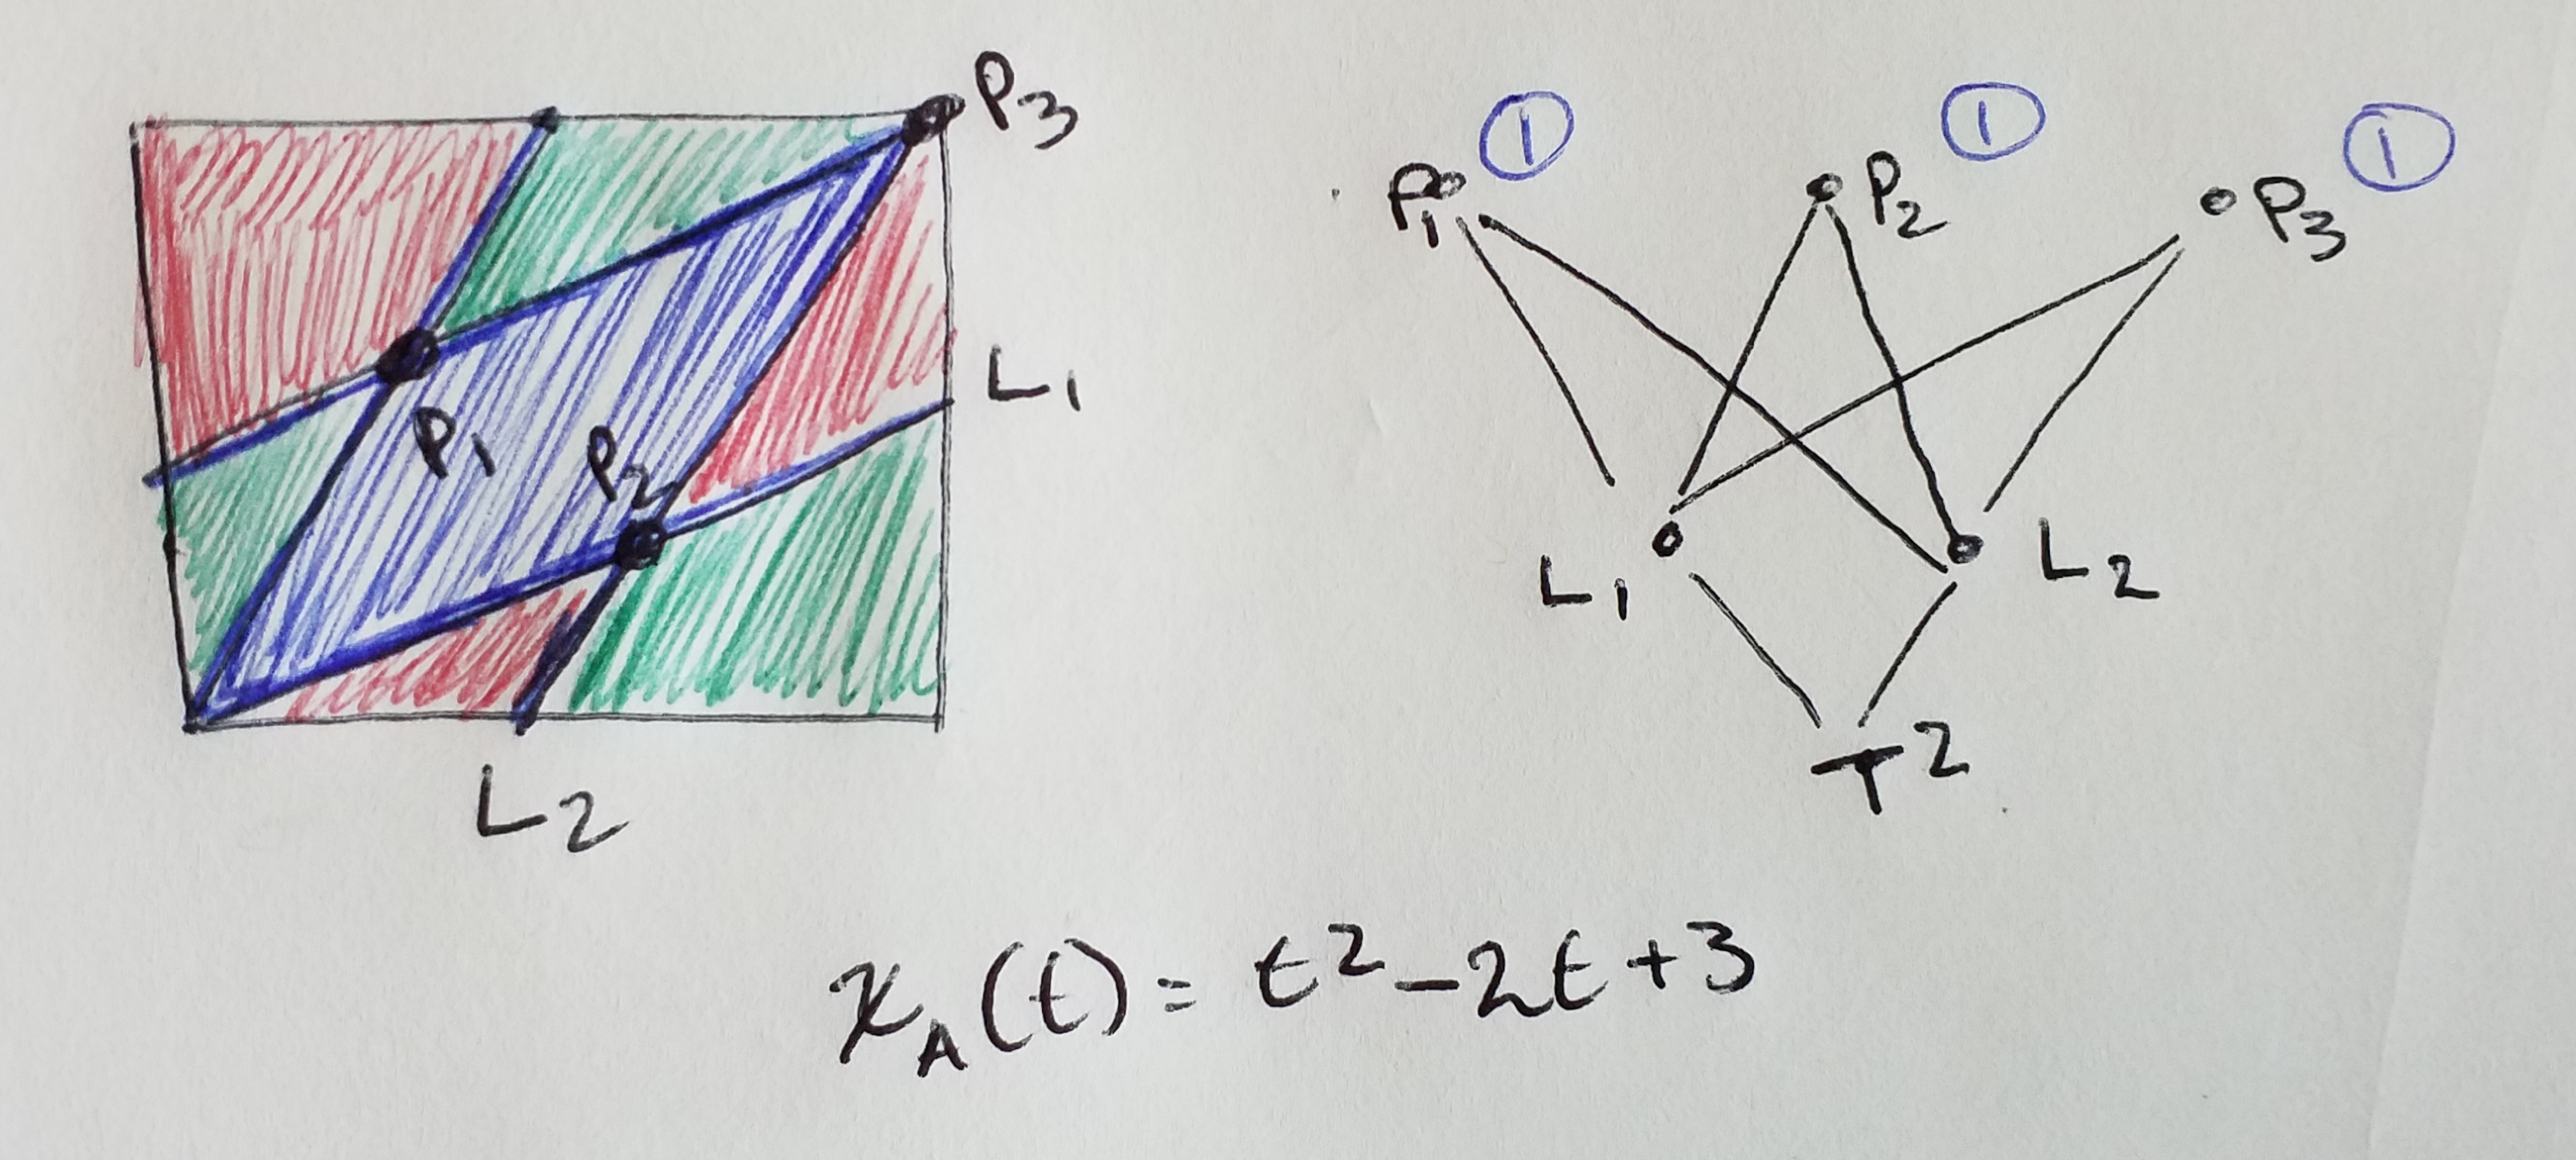 P3
L1
P1
P2
L2
P1 1
P2 1
P3 1
L1
L2
T2
χA(t) = t² - 2t + 3